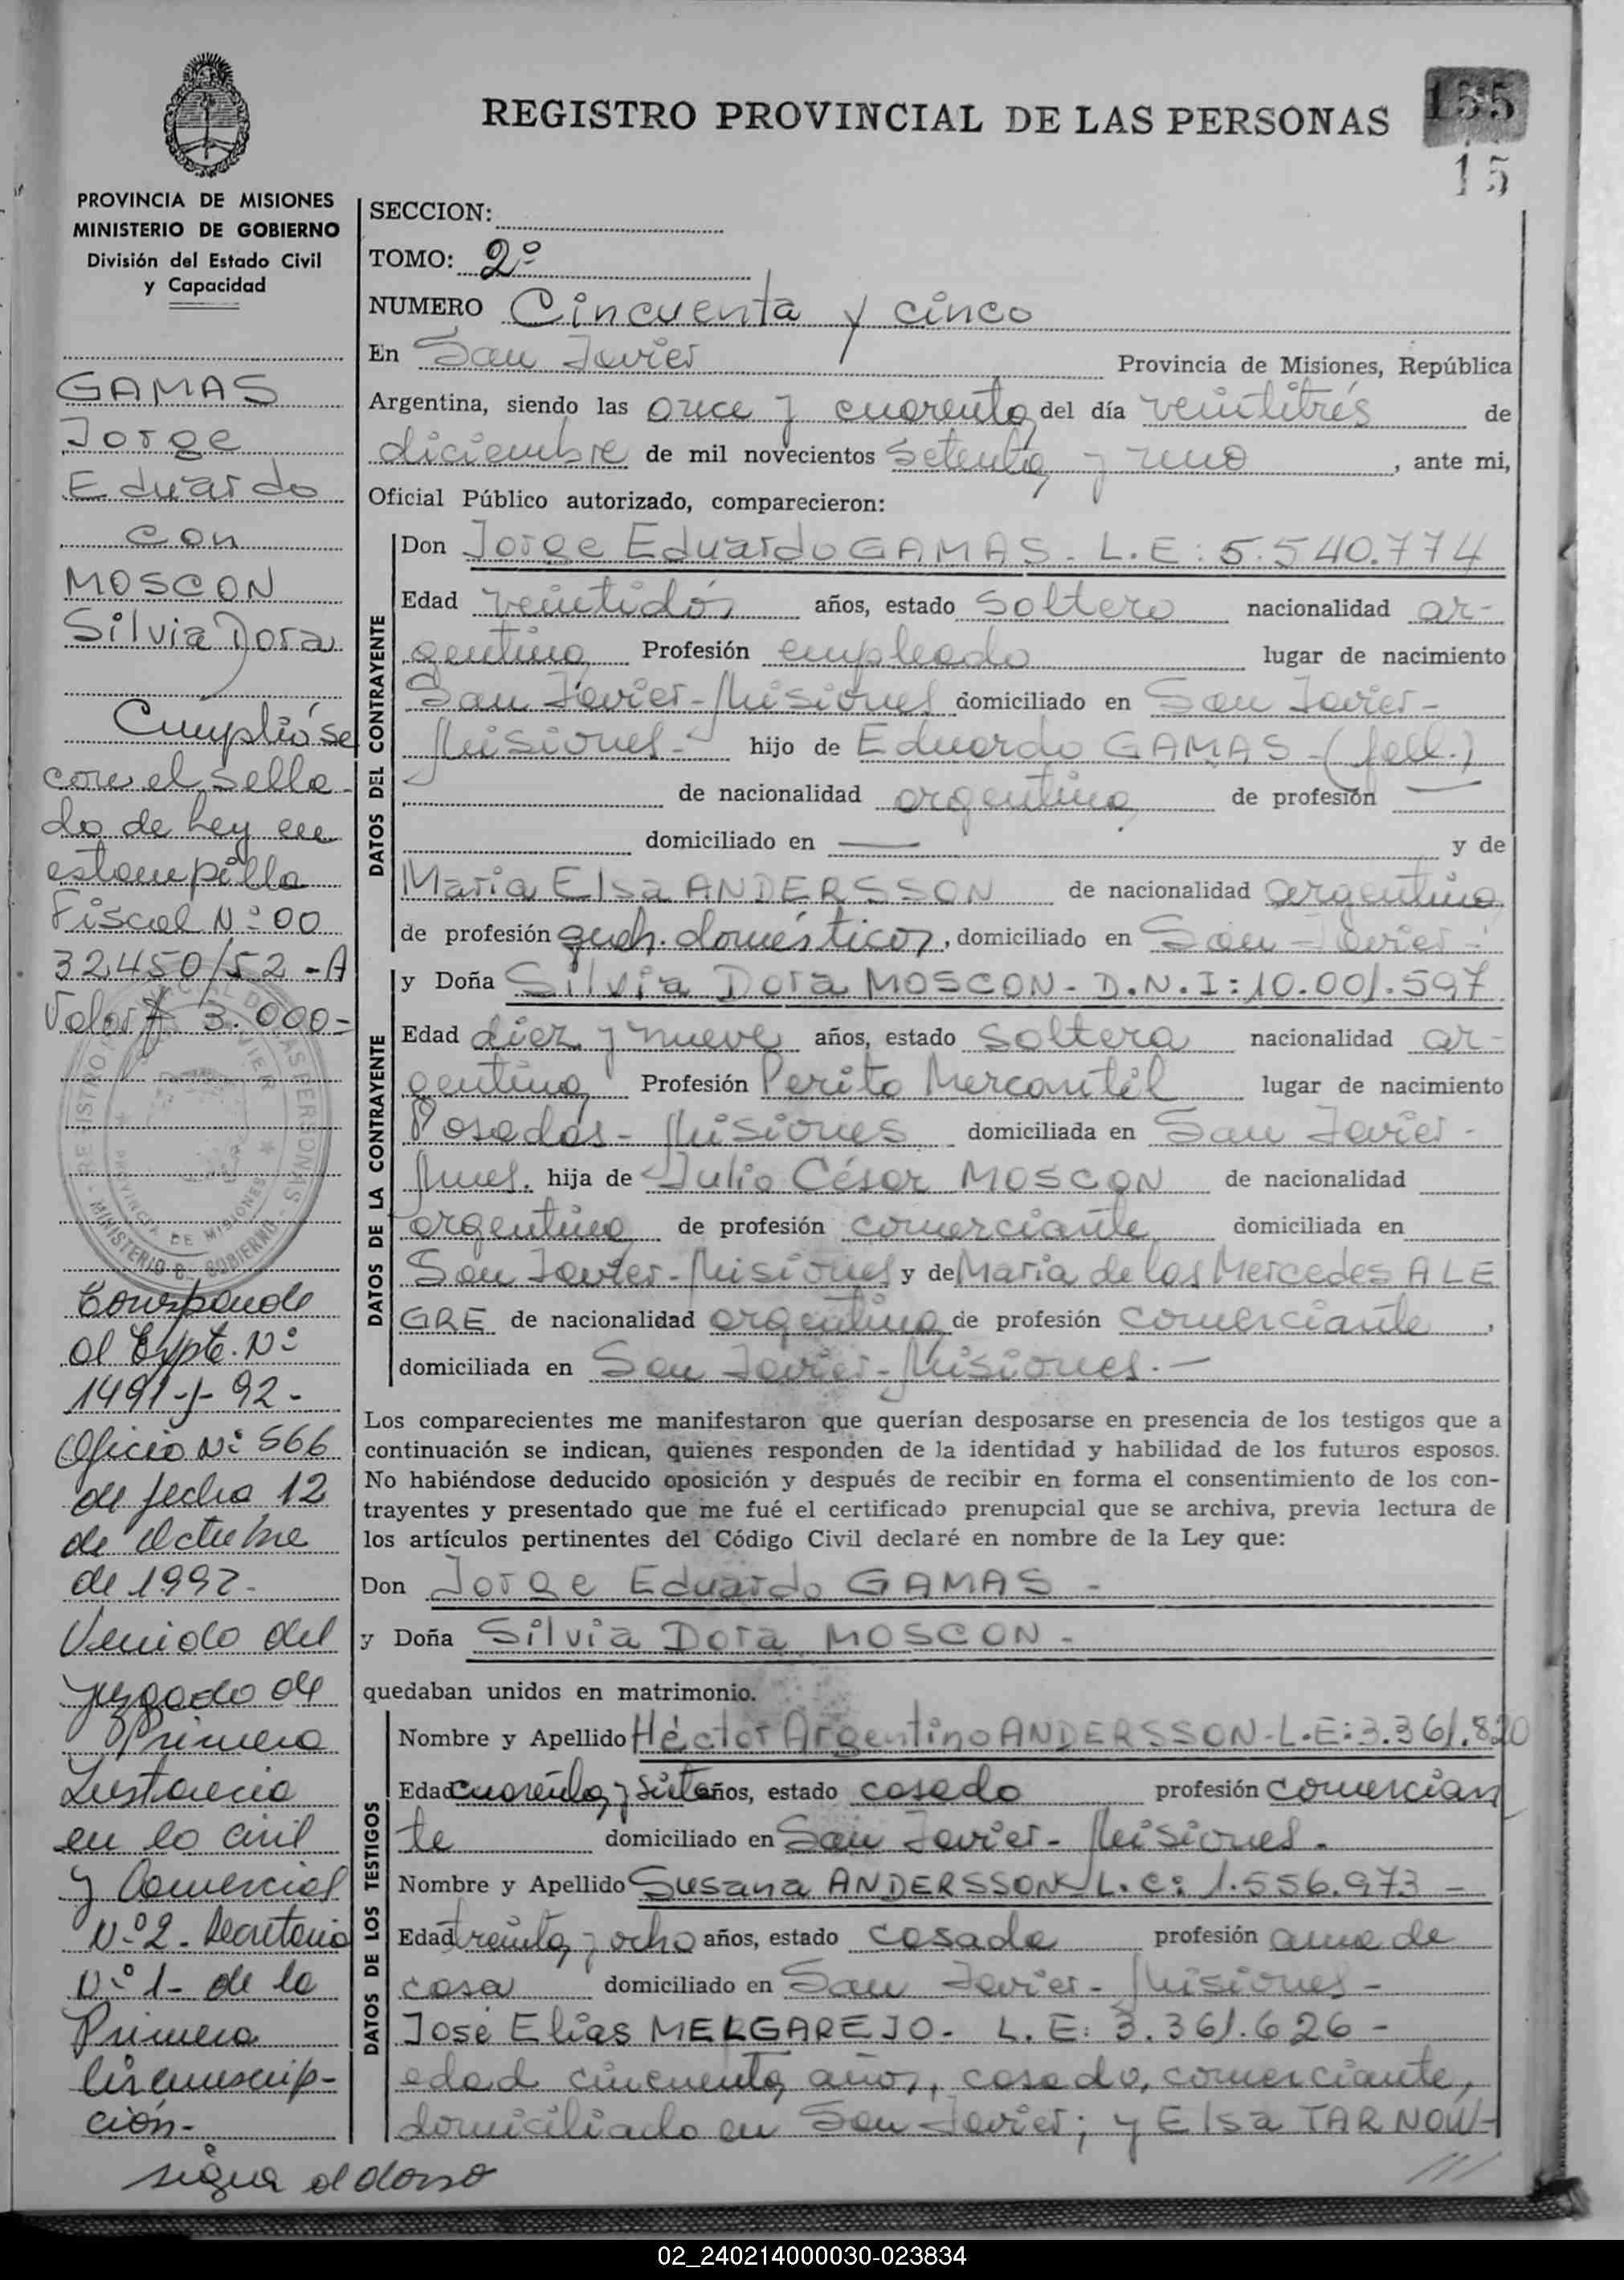 REGISTRO PROVINCIAL DE LAS PERSONAS
155
15
PROVINCIA DE MISIONES
MINISTERIO DE GOBIERNO
División del Estado Civil
y Capacidad
GAMAS
Jorge
Eduardo
con
MOSCON
Silvia Dora
Cumplióse
con el sella-
do de Ley en
estampilla
Fiscal Nº 00
32.450/52-A
Valor $ 3.000=
REGISTRO PROVINCIAL DE LAS PERSONAS
SAN JAVIER
PROVINCIA DE MISIONES
MINISTERIO DE GOBIERNO
Corresponde
al Expte. Nº
1491-J-92-
Oficio Nº 566
de fecha 12
de Octubre
de 1992-
Venido del
Juzgado de
Primera
Instancia
en lo Civil
y Comercial
Nº 2 - Secretaria
Nº 1 - de la
Primera
Circunscrip-
ción.-
sigue al dorso
SECCION:
TOMO: 2º
NUMERO Cincuenta y cinco
En San Javier Provincia de Misiones, República
Argentina, siendo las once y cuarenta del día veintitrés de
diciembre de mil novecientos setenta y uno, ante mi,
Oficial Público autorizado, comparecieron:
DATOS DEL CONTRAYENTE
Don Jorge Eduardo GAMAS - L.E: 5.540.774
Edad veintidós años, estado soltero nacionalidad ar-
gentina Profesión empleado lugar de nacimiento
San Javier - Misiones domiciliado en San Javier -
Misiones - hijo de Eduardo GAMAS - (fall.)
de nacionalidad argentina de profesión —
domiciliado en — y de
María Elsa ANDERSSON de nacionalidad argentina
de profesión queh. domésticos, domiciliado en San Javier -
DATOS DE LA CONTRAYENTE
y Doña Silvia Dora MOSCON - D.N.I: 10.001.597
Edad diez y nueve años, estado soltera nacionalidad ar-
gentina Profesión Perito Mercantil lugar de nacimiento
Posadas - Misiones domiciliada en San Javier -
Mnes. hija de Julio César MOSCON de nacionalidad
argentina de profesión comerciante domiciliada en
San Javier - Misiones y de María de las Mercedes ALE
GRE de nacionalidad argentina de profesión comerciante,
domiciliada en San Javier - Misiones. —
Los comparecientes me manifestaron que querían desposarse en presencia de los testigos que a
continuación se indican, quienes responden de la identidad y habilidad de los futuros esposos.
No habiéndose deducido oposición y después de recibir en forma el consentimiento de los con-
trayentes y presentado que me fué el certificado prenupcial que se archiva, previa lectura de
los artículos pertinentes del Código Civil declaré en nombre de la Ley que:
Don Jorge Eduardo GAMAS -
y Doña Silvia Dora MOSCON -
quedaban unidos en matrimonio.
DATOS DE LOS TESTIGOS
Nombre y Apellido Héctor Argentino ANDERSSON - L.E: 3.361.820
Edad cuarenta y siete años, estado casado profesión comercian
te domiciliado en San Javier - Misiones -
Nombre y Apellido Susana ANDERSSON L.C: 1.556.973 -
Edad treinta y ocho años, estado casada profesión ama de
casa domiciliado en San Javier - Misiones -
José Elías MELGAREJO - L.E: 3.361.626 -
edad cincuenta años, casado, comerciante,
domiciliado en San Javier; y Elsa TARNOW-
///
02_240214000030-023834